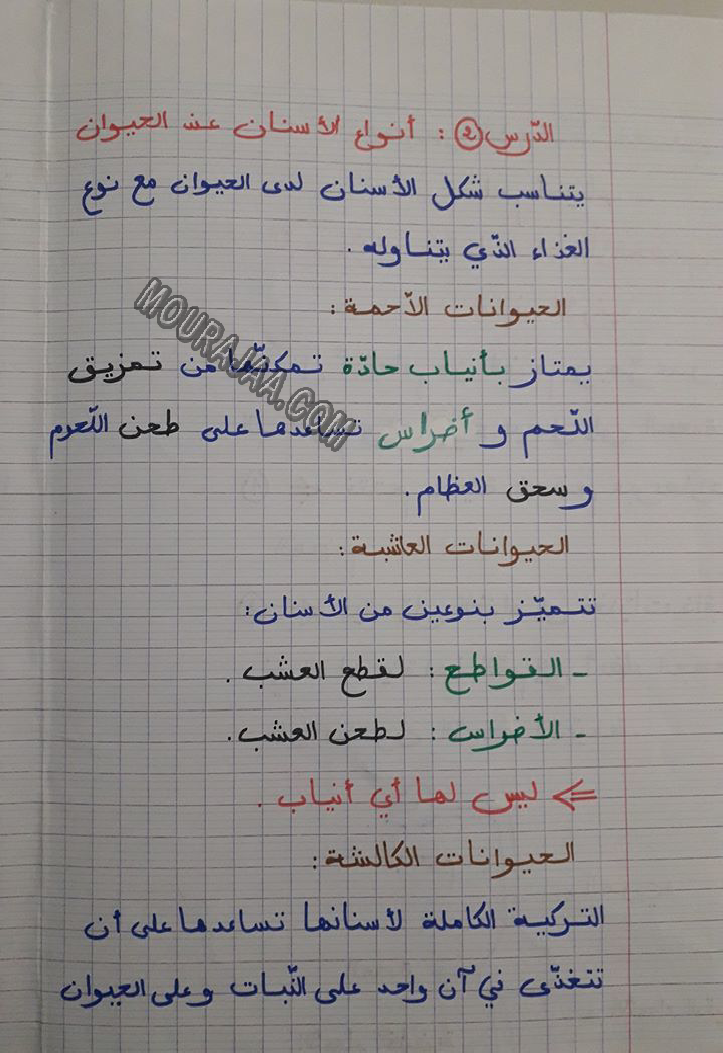 الدّرس ②: أنواع الأسنان عند الحيوان
يتناسب شكل الأسنان لدى الحيوان مع نوع
الغذاء الذّي يتناوله.
الحيوانات الآحمة:
يمتاز بأنياب حادّة تمكنّها من تمزيق
اللّحم و أضراس تساعدها على طحن اللّحوم
و سحق العظام.
الحيوانات العاشبة:
تتميّز بنوعين من الأسنان:
- القواطع: لقطع العشب.
- الأضراس: لطحن العشب.
⇐ ليس لها أي أنياب.
الحيوانات الكالشة:
التركيبة الكاملة لأسنانها تساعدها على أن
تتغذّى في آن واحد على النّبات وعلى الحيوان
MOURAJAA.COM